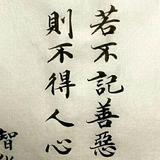 若不記善惡
則不得人心
智